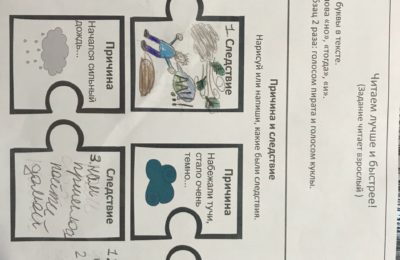 Читаем лучше и быстрее!
(Задание читает взрослый)
буквы в тексте.
ова «но», «тогда», «и».
бзац 2 раза: голосом пирата и голосом куклы.
Причина и следствие
Нарисуй или напиши, какие были следствия.
1. Следствие
Причина
Набежали тучи,
стало очень
темно...
Причина
Начался сильный
дождь...
Следствие
3. нам
пришлось
пойти
домой